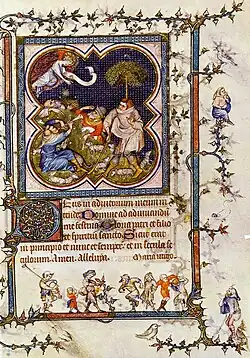 Eus in adiutorium meum in
tende. Domine ad adiuvandū
me festina. Gloria patri et filio
et spiritui sancto. Sicut erat
in principio et nunc et semper et in secula se
culorum. Amen. Alleluya.